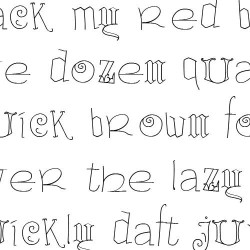 ack my red b
e dozen qua
uick brown fo
ver the lazy
uickly daft ju